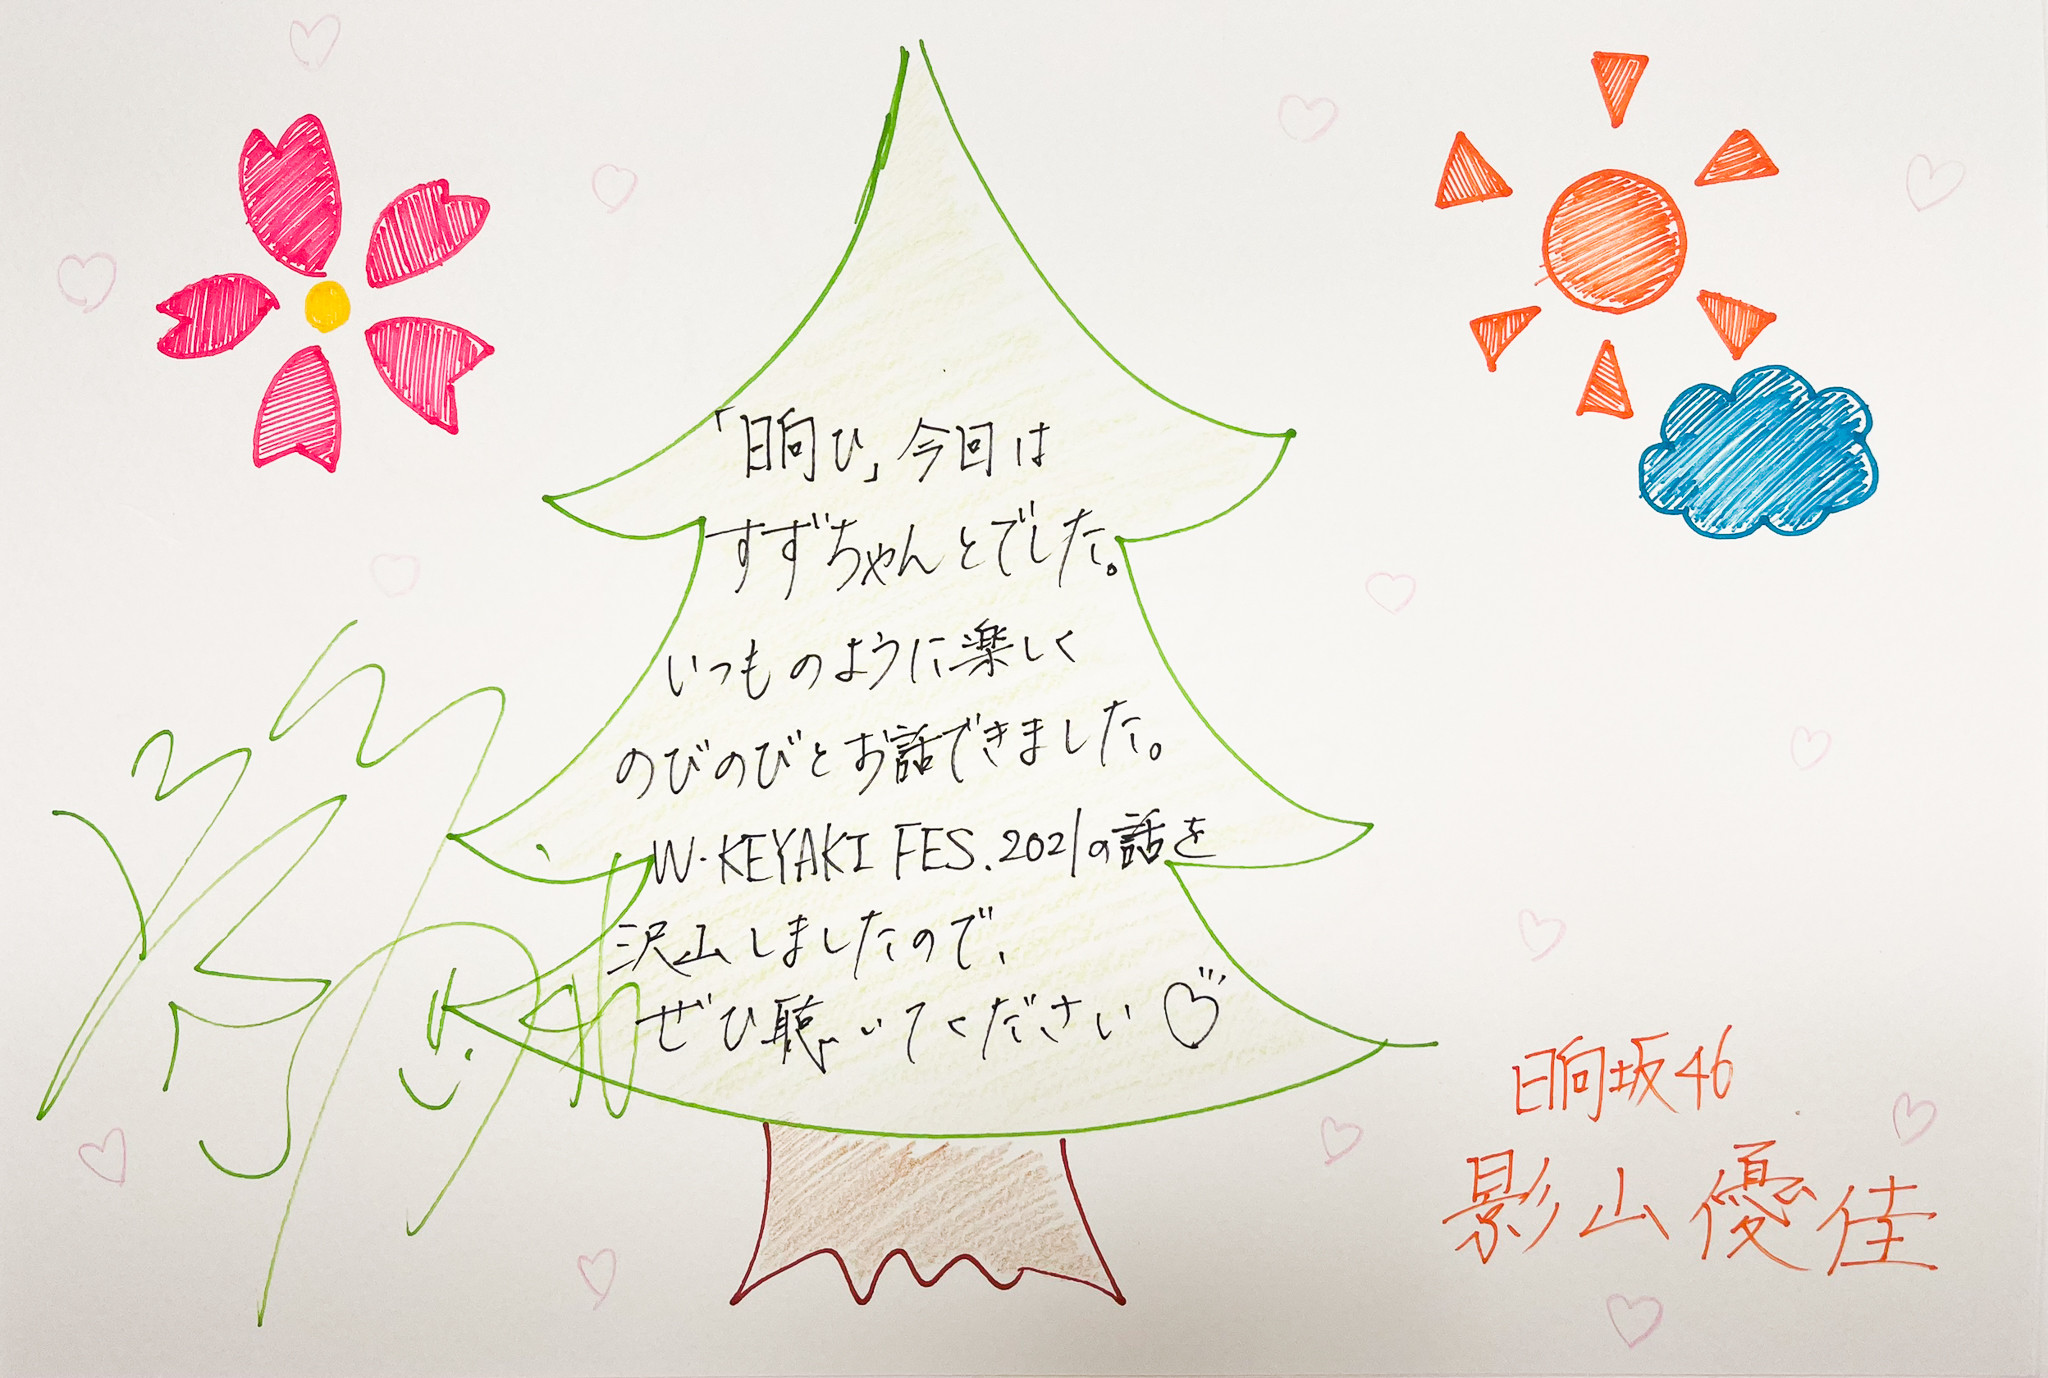 「日向ひ」今回は
すずちゃんとでした。
いつものように楽しく
のびのびとお話できました。
W-KEYAKI FES.2021の話を
沢山しましたので、
ぜひ聴いてください♡
日向坂46
影山優佳